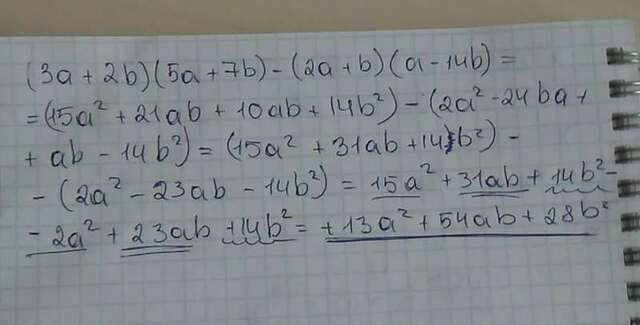 (3a + 2b)(5a + 7b) - (2a + b)(a - 14b) =
= (15a² + 21ab + 10ab + 14b²) - (2a² - 24ba +
+ ab - 14b²) = (15a² + 31ab + 14b²) -
- (2a² - 23ab - 14b²) = 15a² + 31ab + 14b² -
- 2a² + 23ab + 14b² = + 13a² + 54ab + 28b²